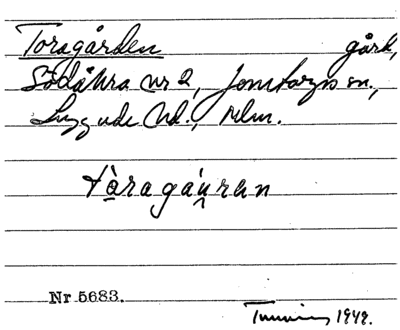 Toragården gård,
Södåkra nr 2, Jonstorps sn.,
Luggude hd., Mlm.
tàragáu̯ran
Nr 5683.
1948.